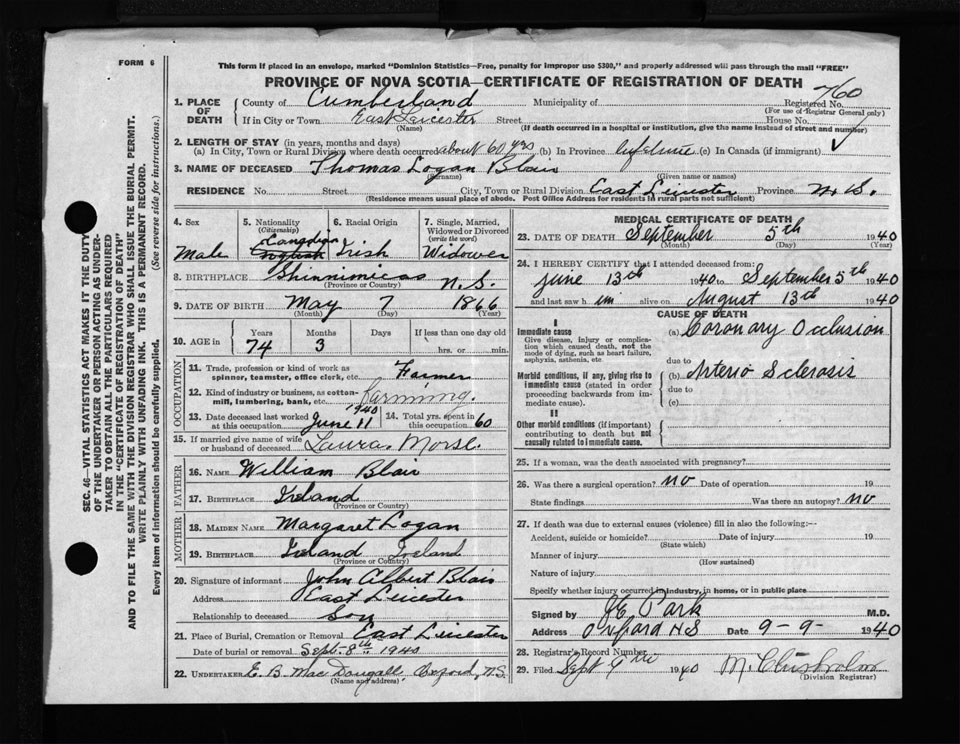 FORM 6
This form if placed in an envelope, marked "Dominion Statistics—Free, penalty for improper use $300," and properly addressed will pass through the mail "FREE"
PROVINCE OF NOVA SCOTIA—CERTIFICATE OF REGISTRATION OF DEATH
760
1. PLACE OF DEATH County of Cumberland Municipality of Registered No.
(For use of Registrar General only)
If in City or Town East Leicester Street House No.
(Name) (If death occurred in a hospital or institution, give the name instead of street and number)
2. LENGTH OF STAY (in years, months and days)
(a) In City, Town or Rural Division where death occurred about 60 yrs (b) In Province lifetime (c) In Canada (if immigrant) ✓
3. NAME OF DECEASED Thomas Logan Blair
(Surname) (Given name or names)
RESIDENCE No. Street City, Town or Rural Division East Leicester Province N.S.
(Residence means usual place of abode. Post Office Address for residents in rural parts not sufficient)
4. Sex 5. Nationality (Citizenship) 6. Racial Origin 7. Single, Married, Widowed or Divorced (write the word)
Canadian
Male English Irish Widower
8. BIRTHPLACE Shinnimicas N.S.
(Province or Country)
9. DATE OF BIRTH May 7 1866
(Month) (Day) (Year)
10. AGE in Years Months Days If less than one day old
74 3 hrs. or min.
OCCUPATION
11. Trade, profession or kind of work as spinner, teamster, office clerk, etc. Farmer
12. Kind of industry or business, as cotton-mill, lumbering, bank, etc. Farming.
13. Date deceased last worked at this occupation June 11 1940 14. Total yrs. spent in this occupation 60
15. If married give name of wife or husband of deceased Laura Morse.
FATHER
16. NAME William Blair
17. BIRTHPLACE Ireland
(Province or Country)
MOTHER
18. MAIDEN NAME Margaret Logan
19. BIRTHPLACE Ireland Ireland
(Province or Country)
20. Signature of informant John Albert Blair
Address East Leicester
Relationship to deceased Son
21. Place of Burial, Cremation or Removal East Leicester
Date of burial or removal Sept. 8th 1940
22. UNDERTAKER E. B. MacDougall Oxford, N.S.
(Name and address)
MEDICAL CERTIFICATE OF DEATH
23. DATE OF DEATH September 5th 1940
(Month) (Day) (Year)
24. I HEREBY CERTIFY that I attended deceased from:
June 13th 1940 to September 5th 1940
and last saw him alive on August 13th 1940
CAUSE OF DEATH
I
Immediate cause (a) Coronary Occlusion
Give disease, injury or complication which caused death, not the mode of dying, such as heart failure, asphyxia, asthenia, etc
due to
Morbid conditions, if any, giving rise to immediate cause (stated in order proceeding backwards from immediate cause). (b) Arterio Sclerosis
due to
(c)
II
Other morbid conditions (if important) contributing to death but not causally related to immediate cause.
25. If a woman, was the death associated with pregnancy?
26. Was there a surgical operation? No Date of operation 19
State findings Was there an autopsy? No
27. If death was due to external causes (violence) fill in also the following:—
Accident, suicide or homicide? Date of injury 19
(State which)
Manner of injury
(How sustained)
Nature of injury
Specify whether injury occurred in industry, in home, or in public place
Signed by Park M.D.
Address Oxford NS Date 9-9- 1940
28. Registrar's Record Number
29. Filed Sept 9th 1940 M. Chisholm
(Division Registrar)
SEC. 46—VITAL STATISTICS ACT MAKES IT THE DUTY
OF THE UNDERTAKER OR PERSON ACTING AS UNDER-
TAKER TO OBTAIN ALL THE PARTICULARS REQUIRED
IN THE "CERTIFICATE OF REGISTRATION OF DEATH"
AND TO FILE THE SAME WITH THE DIVISION REGISTRAR WHO SHALL ISSUE THE BURIAL PERMIT.
WRITE PLAINLY WITH UNFADING INK. THIS IS A PERMANENT RECORD.
Every item of information should be carefully supplied. (See reverse side for instructions.)